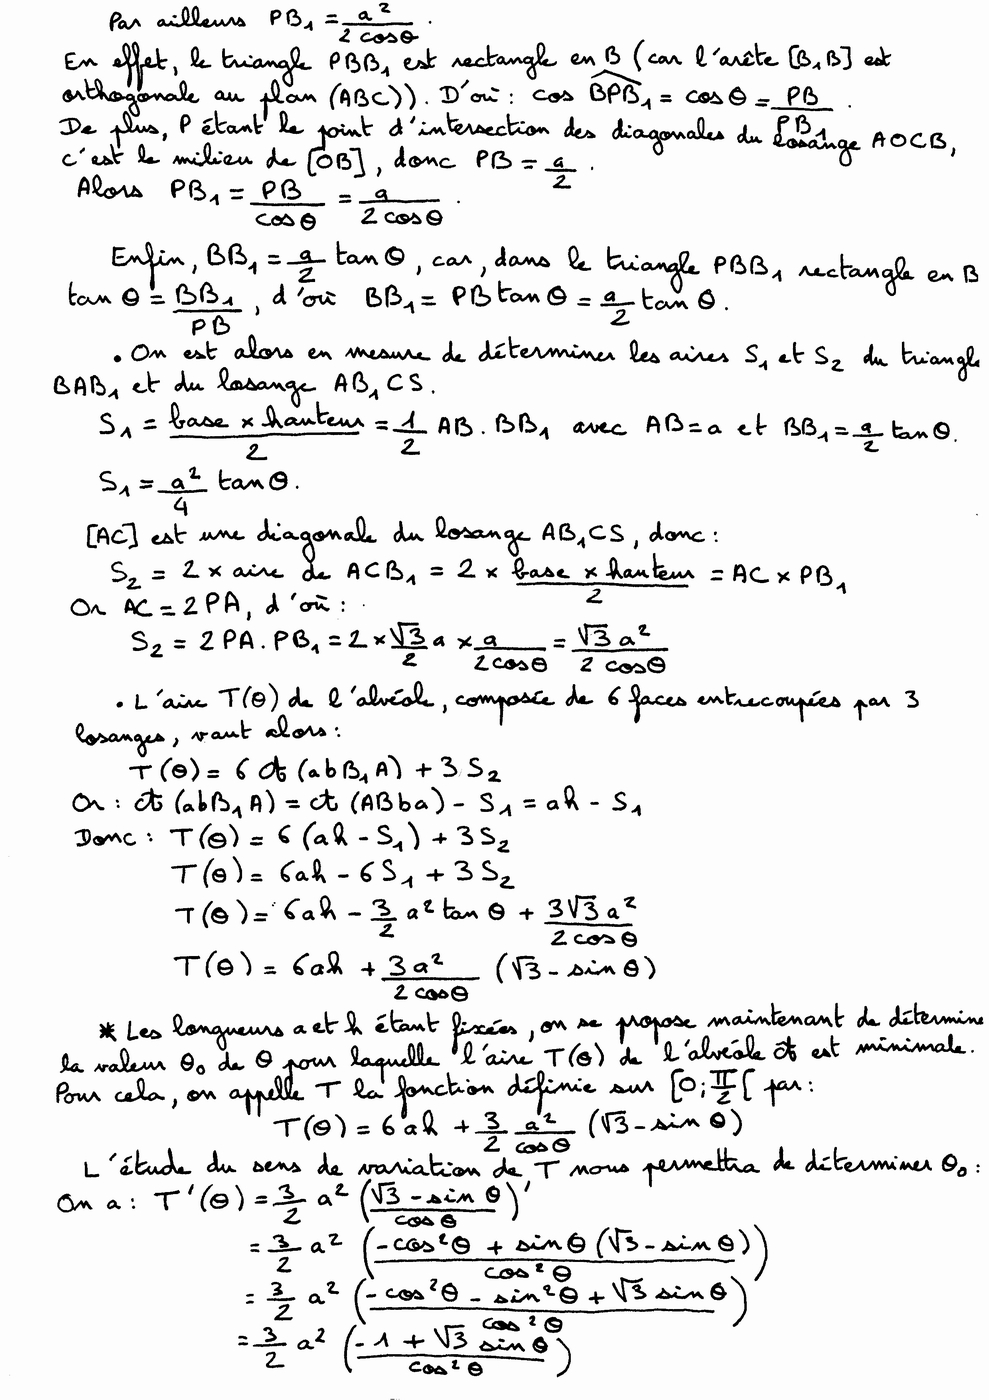 Par ailleurs PB₁ = a²/(2 cosθ).
En effet, le triangle PBB₁ est rectangle en B (car l'arête [B₁B] est
orthogonale au plan (ABC)). D'où : cos BPB₁ = cos θ = PB/PB₁.
De plus, P étant le point d'intersection des diagonales du losange AOCB,
c'est le milieu de [OB], donc PB = a/2.
Alors PB₁ = PB/cosθ = a/(2 cosθ).
Enfin, BB₁ = a/2 tan θ, car, dans le triangle PBB₁ rectangle en B
tan θ = BB₁/PB, d'où BB₁ = PB tan θ = a/2 tan θ.
• On est alors en mesure de déterminer les aires S₁ et S₂ du triangle
BAB₁ et du losange AB₁CS.
S₁ = (base × hauteur)/2 = 1/2 AB . BB₁ avec AB = a et BB₁ = a/2 tan θ.
S₁ = a²/4 tan θ.
[AC] est une diagonale du losange AB₁CS, donc :
S₂ = 2 × aire de ACB₁ = 2 × (base × hauteur)/2 = AC × PB₁
Or AC = 2PA, d'où :
S₂ = 2 PA . PB₁ = 2 × √3/2 a × a/(2cosθ) = √3 a²/(2 cosθ)
• L'aire T(θ) de l'alvéole, composée de 6 faces entrecoupées par 3
losanges, vaut alors :
T(θ) = 6 𝒜(abB₁A) + 3 S₂
Or : 𝒜(abB₁A) = 𝒜(ABba) - S₁ = ah - S₁
Donc : T(θ) = 6 (ah - S₁) + 3S₂
T(θ) = 6ah - 6S₁ + 3S₂
T(θ) = 6ah - 3/2 a² tan θ + 3√3 a²/(2 cosθ)
T(θ) = 6ah + 3a²/(2 cosθ) (√3 - sin θ)
* Les longueurs a et h étant fixées, on se propose maintenant de détermine
la valeur θ₀ de θ pour laquelle l'aire T(θ) de l'alvéole 𝒜 est minimale.
Pour cela, on appelle T la fonction définie sur [0; π/2[ par :
T(θ) = 6ah + 3/2 a²/cosθ (√3 - sin θ)
L'étude du sens de variation de T nous permettra de déterminer θ₀ :
On a : T'(θ) = 3/2 a² ((√3 - sin θ)/cosθ)'
= 3/2 a² ((-cos²θ + sin θ (√3 - sin θ))/cos²θ)
= 3/2 a² ((-cos²θ - sin²θ + √3 sin θ)/cos²θ)
= 3/2 a² ((-1 + √3 sin θ)/cos²θ)